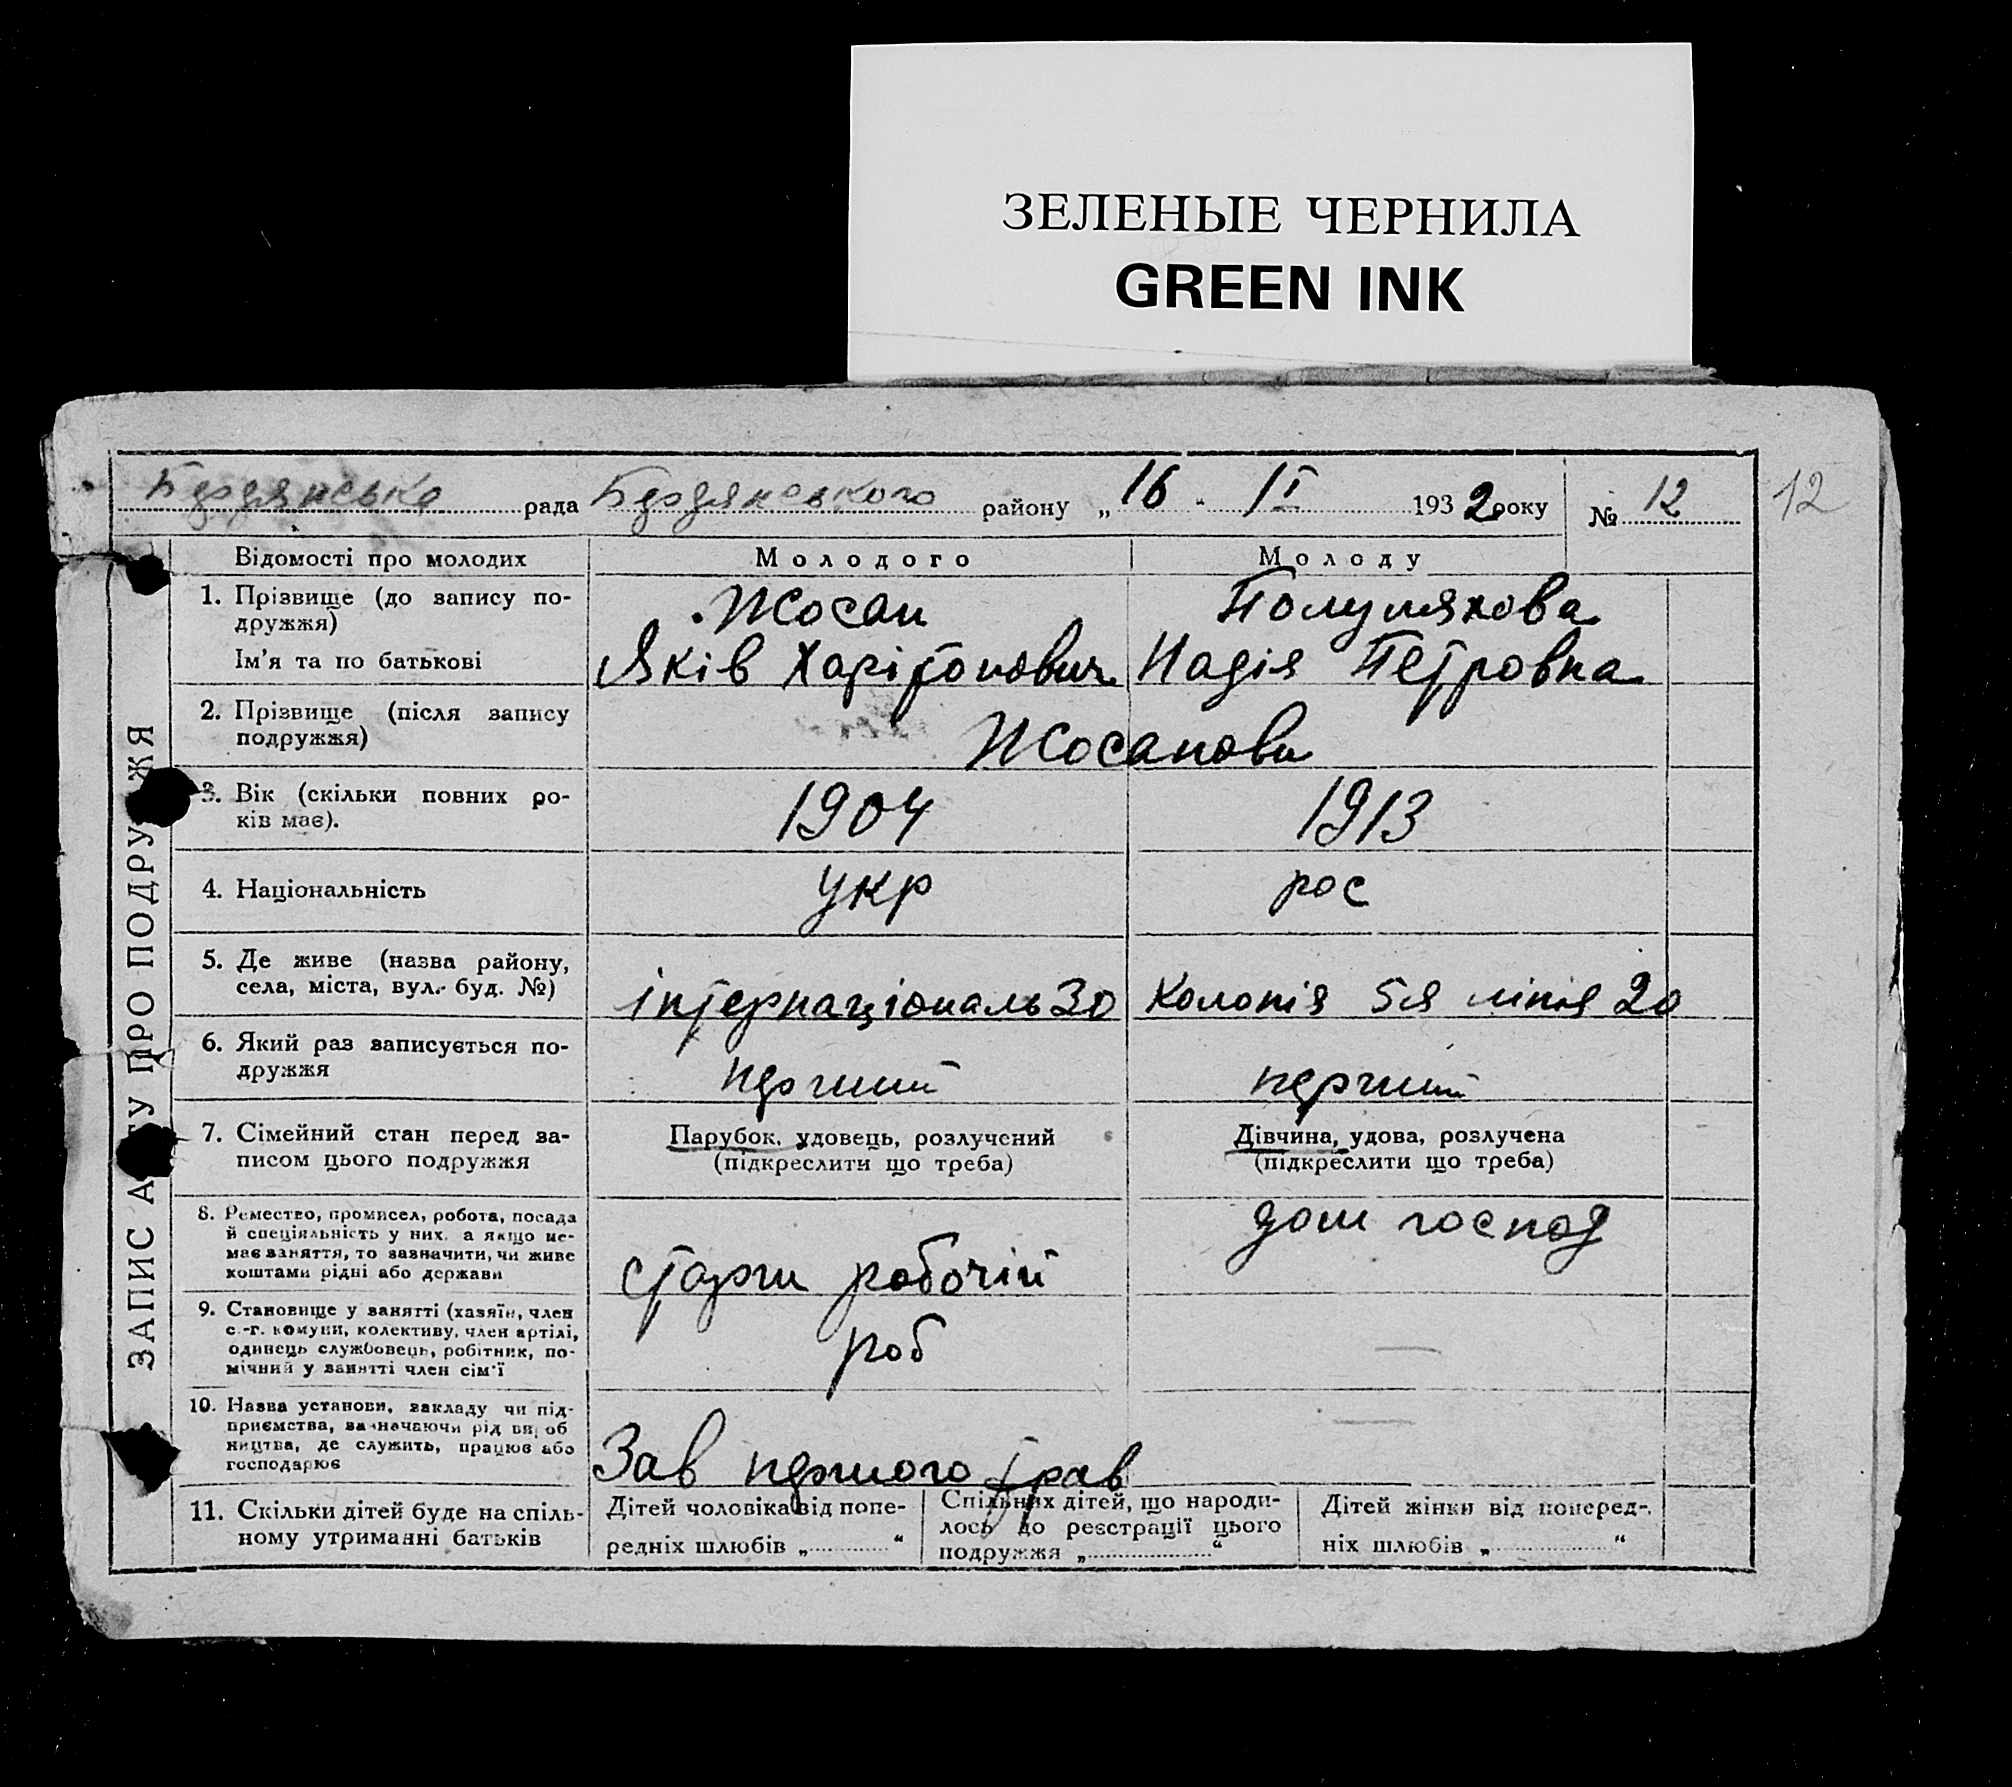 ЗЕЛЕНЫЕ ЧЕРНИЛА
GREEN INK
Бердянська рада Бердянського району „ 16 - I 1932 року № 12 12
ЗАПИС АКТУ ПРО ПОДРУЖЖЯ
Відомості про молодих Молодого Молоду
1. Прізвище (до запису по- Жосан
дружжя)
Ім'я та по батькові Яків Харітонович Надія Петровна
2. Прізвище (після запису
подружжя) Жосанови
3. Вік (скільки повних ро- 1904 1913
ків має).
4. Національність укр рос
5. Де живе (назва району,
села, міста, вул.- буд. №) інтернаціональ 30 Колонія 5я лінія 20
6. Який раз записується по-
дружжя перший перший
7. Сімейний стан перед за- Парубок, удовець, розлучений Дівчина, удова, розлучена
писом цього подружжя (підкреслити що треба) (підкреслити що треба)
8. Ремество, промисел, робота, посада дом господ
й спеціяльність у них. а якщо не-
має заняття, то зазначити, чи живе
коштами рідні або держави старш робочій
9. Становище у занятті (хазяїн, член
с.-г. комуни, колективу, член артілі,
одинець службовець, робітник, по- роб —
мічний у занятті член сім'ї
10. Назва установи, закладу чи під-
приємства, зазначаючи рід вироб —
ництва, де служить, працює або
господарює Зав першого трав
11. Скільки дітей буде на спіль- Дітей чоловіка від попе- Спільних дітей, що народи- Дітей жінки від поперед-
ному утриманні батьків редніх шлюбів „ “ лось до реєстрації цього ніх шлюбів „ “
подружжя „ “